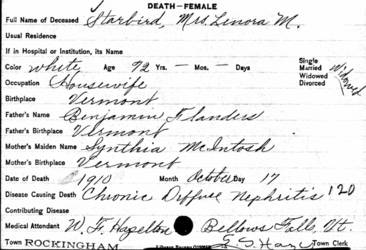 DEATH—FEMALE
Full Name of Deceased Starbird, Mrs. Lenora M.
Usual Residence
If in Hospital or Institution, its Name
Color white Age 72 Yrs. — Mos. — Days Single Married Widowed Divorced Widowed
Occupation Housewife
Birthplace Vermont
Father's Name Benjamin Flanders
Father's Birthplace Vermont
Mother's Maiden Name Synthia McIntosh
Mother's Birthplace Vermont
Date of Death 1910 Month October Day 17
Disease Causing Death Chronic Diffuse Nephritis 120
Contributing Disease
Medical Attendant W. F. Hazelton Bellows Falls, Vt.
Town ROCKINGHAM Town Clerk